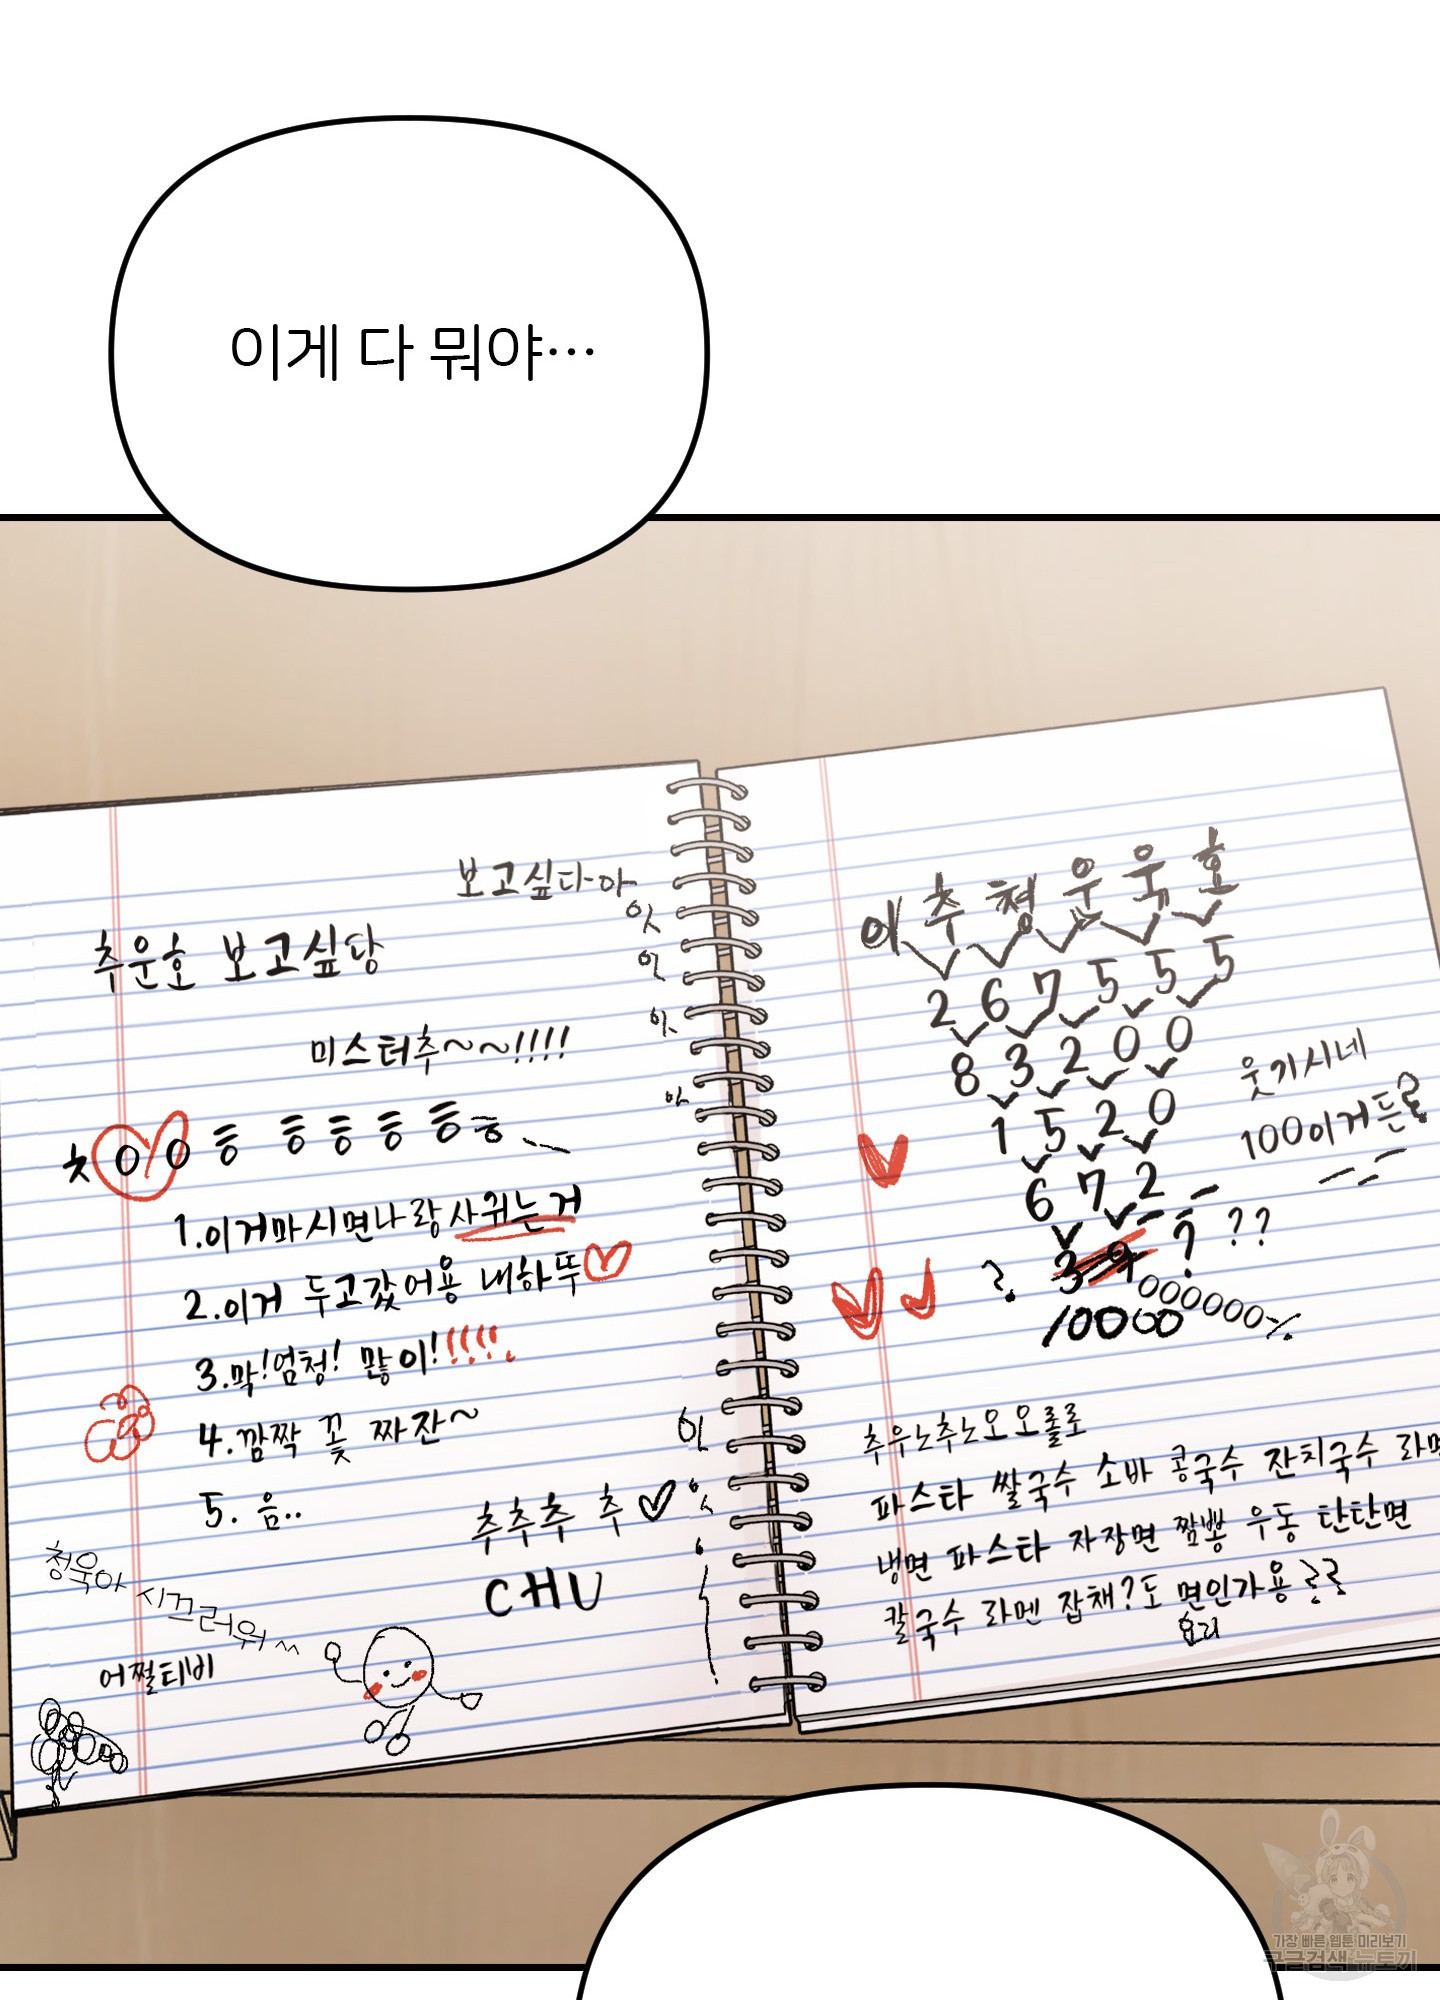 이게 다 뭐야…
보고싶다아
추운호 보고싶당
미스터추~~!!!!
1.이거마시면나랑사귀는거
2.이거 두고갔어용 내하뚜♡
3.막!엄청! 많이!!!!!.
4.깜짝 꽃 짜잔~
5. 음..
추추추 추♡
CHU
청욱아 시끄러워^^
어쩔티비
이추청운욱호
2 6 7 5 5 5
8 3 2 0 0
1 5 2 0
6 7 2
3 9 ? ??
10000
000000%
웃기시네
100이거든
추우ㄴ추ㄴ오오롤로
파스타 쌀국수 소바 콩국수 잔치국수 라멘
냉면 파스타 자장면 짬뽕 우동 탄탄면
칼국수 라멘 잡채?도 면인가용
요리
가장 빠른 웹툰 미리보기
구글검색 뉴토끼